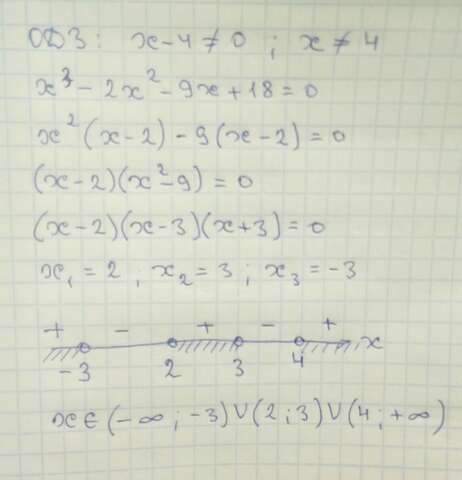 ОДЗ: x-4≠0 ; x≠4
x³-2x²-9x+18=0
x²(x-2)-9(x-2)=0
(x-2)(x²-9)=0
(x-2)(x-3)(x+3)=0
x₁=2 ; x₂=3 ; x₃=-3
+ - + - +
-3 2 3 4 x
x∈(-∞;-3)∪(2;3)∪(4;+∞)